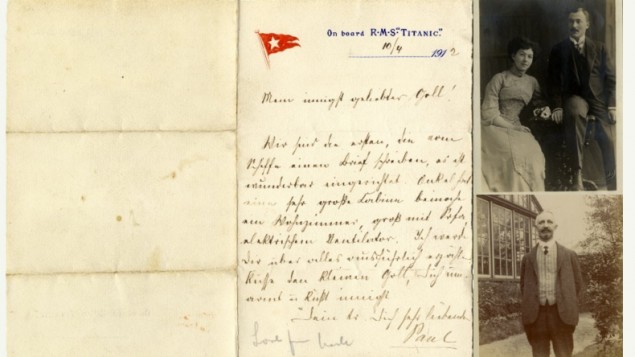 On board R·M·S "TITANIC."
10/4 1912
Mein innigst geliebter Goll!
Wir sind die ersten, die vom
Schiffe einen Brief schreiben, es ist
wunderbar eingerichtet. Onkel hat
eine sehr große Cabine beinahe
ein Wohnzimmer, groß mit Sofa
elektrischem Ventilator. Ich werde
Dir über alles ausführlich erzählen
Küsse den kleinen Goll, Dich um-
armt u küßt innigst
Dein Dich sehr liebender
Paul
Love from